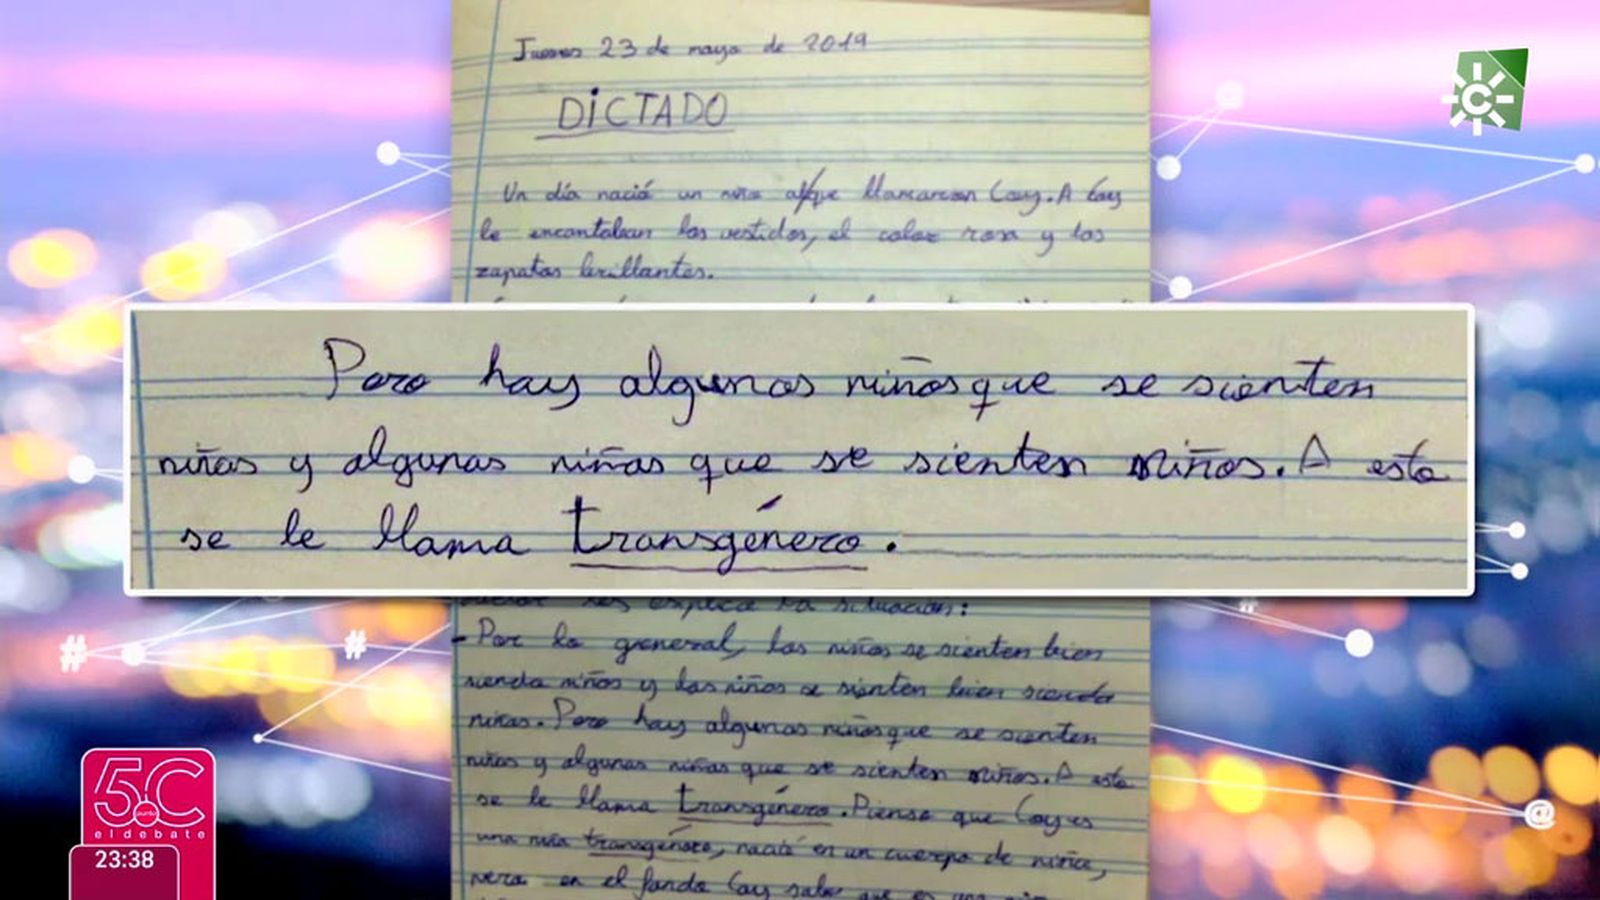 Jueves 23 de mayo de 2019
DiCTADO
Un día nació un niño al que llamaron Coy. A Coy
le encantaban los vestidos, el color rosa y los
zapatos brillantes.
Pero hay algunos niños que se sienten
niñas y algunas niñas que se sienten niños. A esto
se le llama transgénero.
les explica la situación:
- Por lo general, los niños se sienten bien
siendo niños y las niñas se sienten bien siendo
niñas. Pero hay algunos niños que se sienten
niñas y algunas niñas que se sienten niños. A esto
se le llama transgénero. Pienso que Coy es
una niña transgénero, nació en un cuerpo de niño,
pero en el fondo Coy sabe que es una
#
#
#
@
C
5C
punto
el debate
23:38